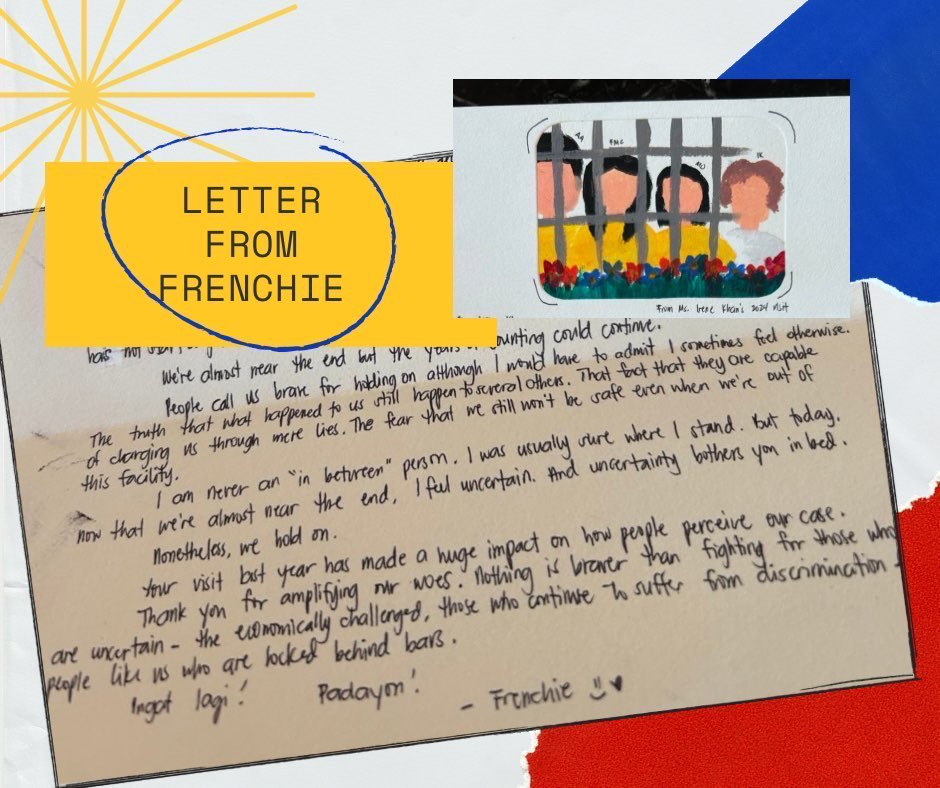 LETTER
FROM
FRENCHIE
FMC
IK
From Ms. Irene Khan's 2024 visit
has not
counting could continue.
We're almost near the end but the years
People call us brave for holding on although I would have to admit I sometimes feel otherwise.
The truth that what happened to us still happen to several others. That fact that they are capable
of charging us through mere lies. The fear that we still won't be safe even when we're out of
this facility.
I am never an "in between" person. I was usually sure where I stand. But today.
now that we're almost near the end, I feel uncertain. And uncertainty bothers you in bed.
Nonetheless, we hold on.
Your visit last year has made a huge impact on how people perceive our case.
Thank you for amplifying our woes. Nothing is braver than fighting for those who
are uncertain - the economically challenged, those who continue to suffer from discrimination -
people like us who are locked behind bars.
Ingat lagi! Padayon!
- Frenchie